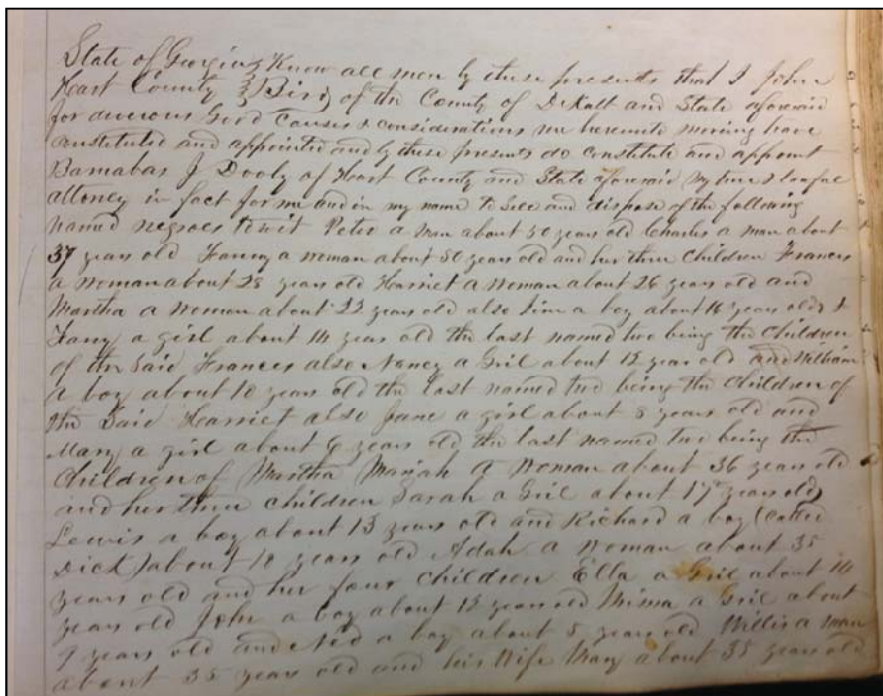 State of Georgia } Know all men by these presents that I John
Hart County } Bird of the County of DeKalb and State aforesaid
for divers Good Causes & considerations me hereunto moving have
constituted and appointed and by these presents do constitute and appoint
Barnabas J Dooly of Hart County and State aforesaid my true & lawful
attorney in fact for me and in my name to Sell and dispose of the following
named negroes towit Peter a man about 50 years old Charles a man about
37 years old Fanny a woman about 50 years old and her three Children Frances
a woman about 28 years old Harriet a woman about 26 years old and
Martha a woman about 22 years old also Jim a boy about 16 years old &
Fany a girl about 14 years old the last named two being the Children
of the Said Frances also Nancy a Gril about 12 years old and William
a boy about 10 years old the last named two being the Children of
the Said Harriet also Jane a girl about 8 years old and
Mary a girl about 6 years old the last named two being the
Children of Martha Mariah a woman about 36 years old
and her three children Sarah a Gril about 17 years old
Lewis a boy about 13 years old and Richard a boy (Called
Dick) about 10 years old Adah a woman about 35
years old and her four children Ella a Gril about 14
years old John a boy about 12 years old Mima a Gril about
9 years old and Ned a boy about 5 years old Willis a man
about 35 years old and his Wife Mary about 35 years old